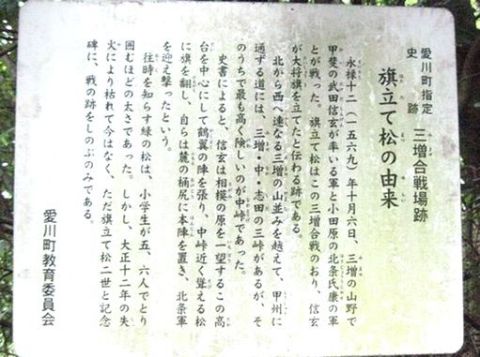 愛川町指定
史跡 三増合戦場跡
旗立て松の由来
永禄十二(一五六九)年十月六日、三増の山野で
甲斐の武田信玄が率いる軍と小田原の北条氏康の軍
とが戦った。旗立て松はこの三増合戦のおり、信玄
が大将旗を立てたと伝わる跡である。
北から西へ連なる三増の山並みを越えて、甲州に
通ずる道には、三増・中・志田の三峠があるが、そ
のうちで最も高く険しいのが中峠であった。
史書によると、信玄は相模の原を一望するこの高
台を中心にして鶴翼の陣を張り、中峠近く聳える松
に旗を翻し、自らは麓の桶尻に本陣を置き、北条軍
を迎え撃ったという。
往時を知らす緑の松は、小学生が五、六人でとり
囲むほどの太さであった。しかし、大正十二年の失
火により枯れて今はなく、ただ旗立て松二世と記念
碑に、戦の跡をしのぶのみである。
愛川町教育委員会